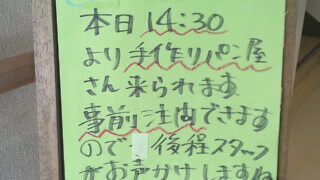 本日 14:30
より 手作りパン屋
さん来られます
事前注向できます
ので 後程スタッフ
がお声かけしますね